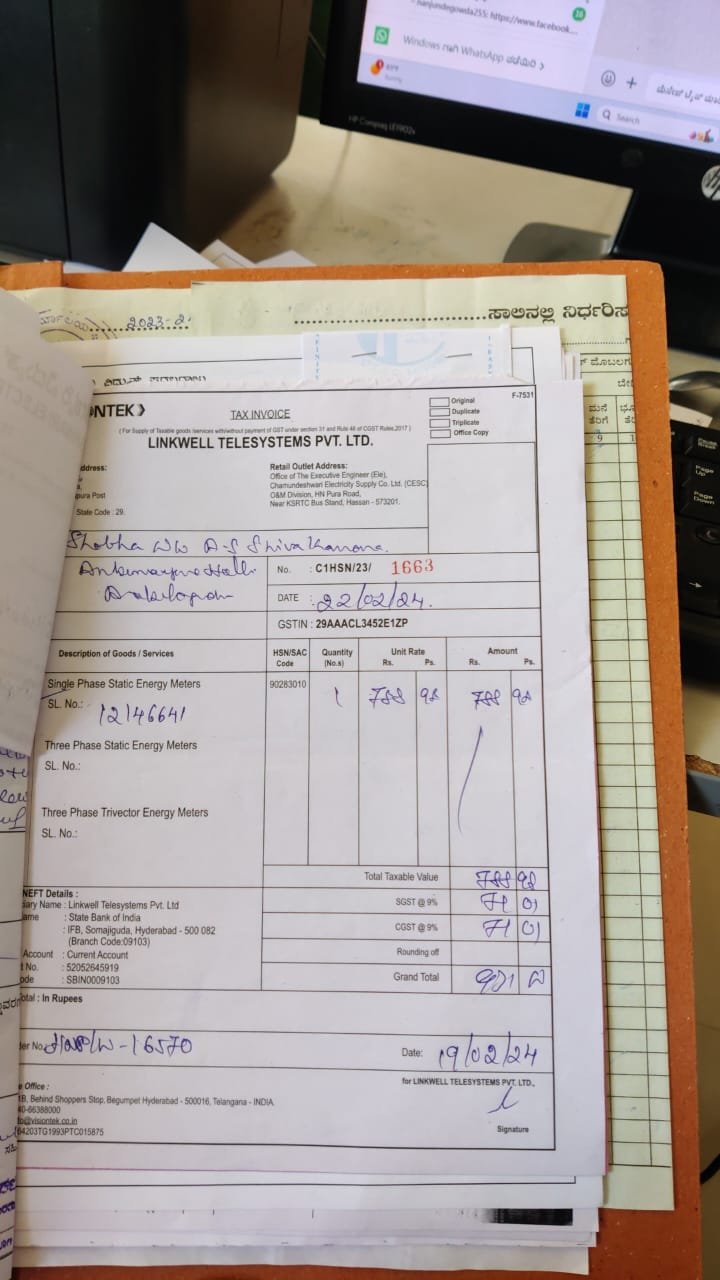 nanjundegowda255: https://www.facebook...
16
Windows ಗಾಗಿ WhatsApp ಪಡೆಯಿರಿ
Sunny
Search
HP Compaq LE1902x
hp
Pause
Break
Page
Up
Page
Down
2023-2
ಸಾಲಿನಲ್ಲಿ ನಿರ್ಧರಿಸ
ಮನೆ
ತೆರಿಗೆ
9
NTEK
TAX INVOICE
Original
Duplicate
Triplicate
Office Copy
F-7531
( For Supply of Taxable goods /services with/without payment of GST under section 31 and Rule 46 of CGST Rules,2017 )
LINKWELL TELESYSTEMS PVT. LTD.
ddress:
pura Post
State Code : 29.
Retail Outlet Address:
Office of The Executive Engineer (Ele),
Chamundeshwari Electricity Supply Co. Ltd. (CESC)
O&M Division, HN Pura Road,
Near KSRTC Bus Stand, Hassan - 573201.
Shobha
No. : C1HSN/23/ 1663
DATE : 22/02/24.
GSTIN : 29AAACL3452E1ZP
Description of Goods / Services HSN/SAC Code Quantity (No.s) Unit Rate Rs. Ps. Amount Rs. Ps.
Single Phase Static Energy Meters 90283010 1 788 98 788 98
SL. No.: 12146641
Three Phase Static Energy Meters
SL. No.:
Three Phase Trivector Energy Meters
SL. No.:
Total Taxable Value 788 98
SGST @ 9% 71 01
CGST @ 9% 71 01
Rounding off
Grand Total 931
NEFT Details :
iary Name : Linkwell Telesystems Pvt. Ltd
ame : State Bank of India
: IFB, Somajiguda, Hyderabad - 500 082
(Branch Code:09103)
Account : Current Account
t No. : 52052645919
ode : SBIN0009103
otal : In Rupees
er No. 16570
Date: 19/02/24
for LINKWELL TELESYSTEMS PVT. LTD.,
e Office :
1B, Behind Shoppers Stop, Begumpet Hyderabad - 500016, Telangana - INDIA.
40-66388000
fo@visiontek.co.in
64203TG1993PTC015875
Signature